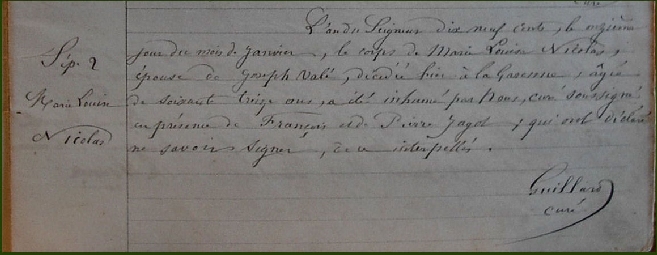 Sép. 2
Marie Louise
Nicolas
L'an du Seigneur dix neuf cents, le onzième
jour du mois de Janvier, le corps de Marie Louise Nicolas,
épouse de Joseph Valé, décédée hier à la Garenne, agée
de soixante treize ans, a été inhumé par Nous, curé soussigné
en présence de François et de Pierre Jagot, qui ont déclaré
ne savoir signer, de ce interpellés.
Guillard
curé